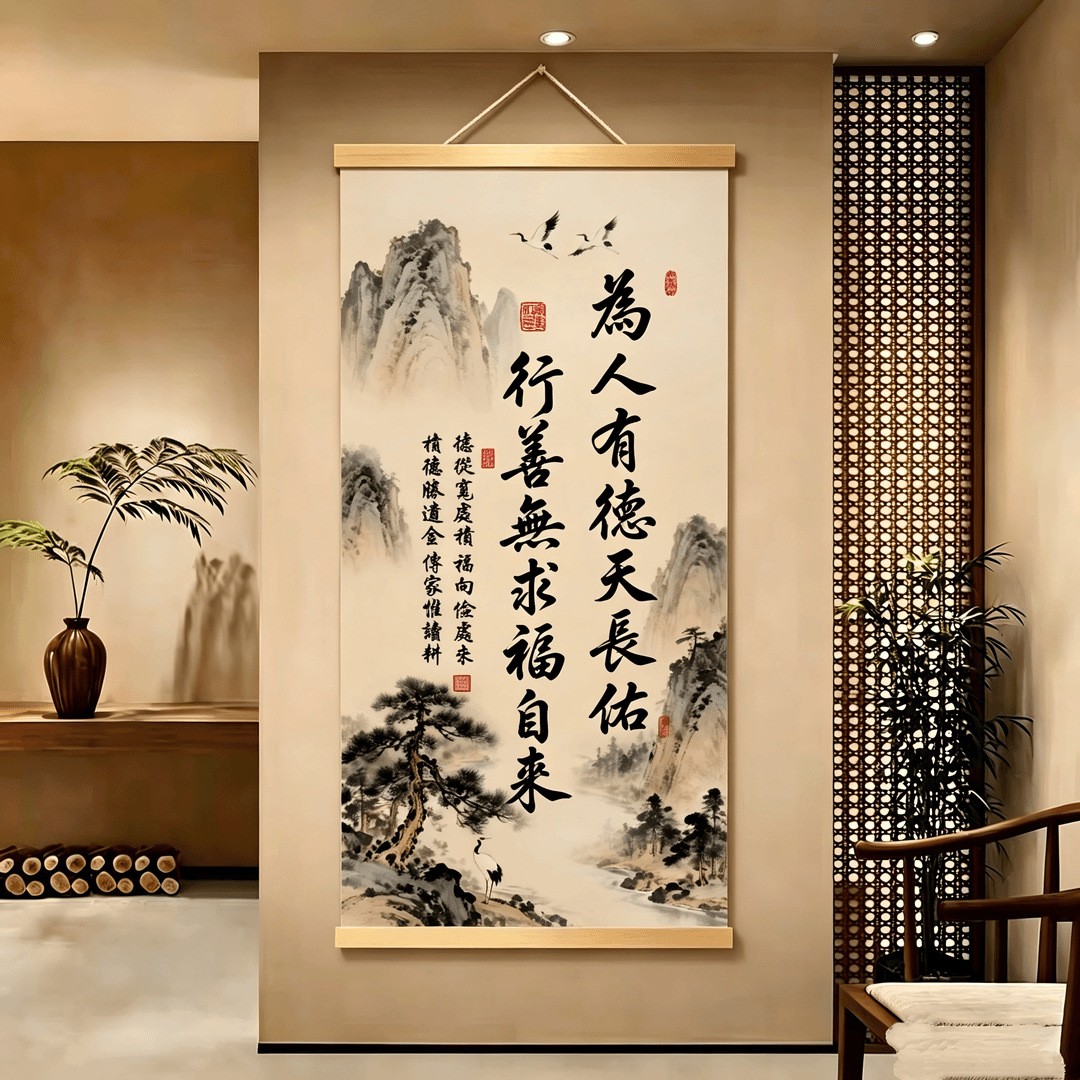 為人有德天長佑
行善無求福自來
德從寬處積福向儉處求
積德勝遺金傳家惟讀耕